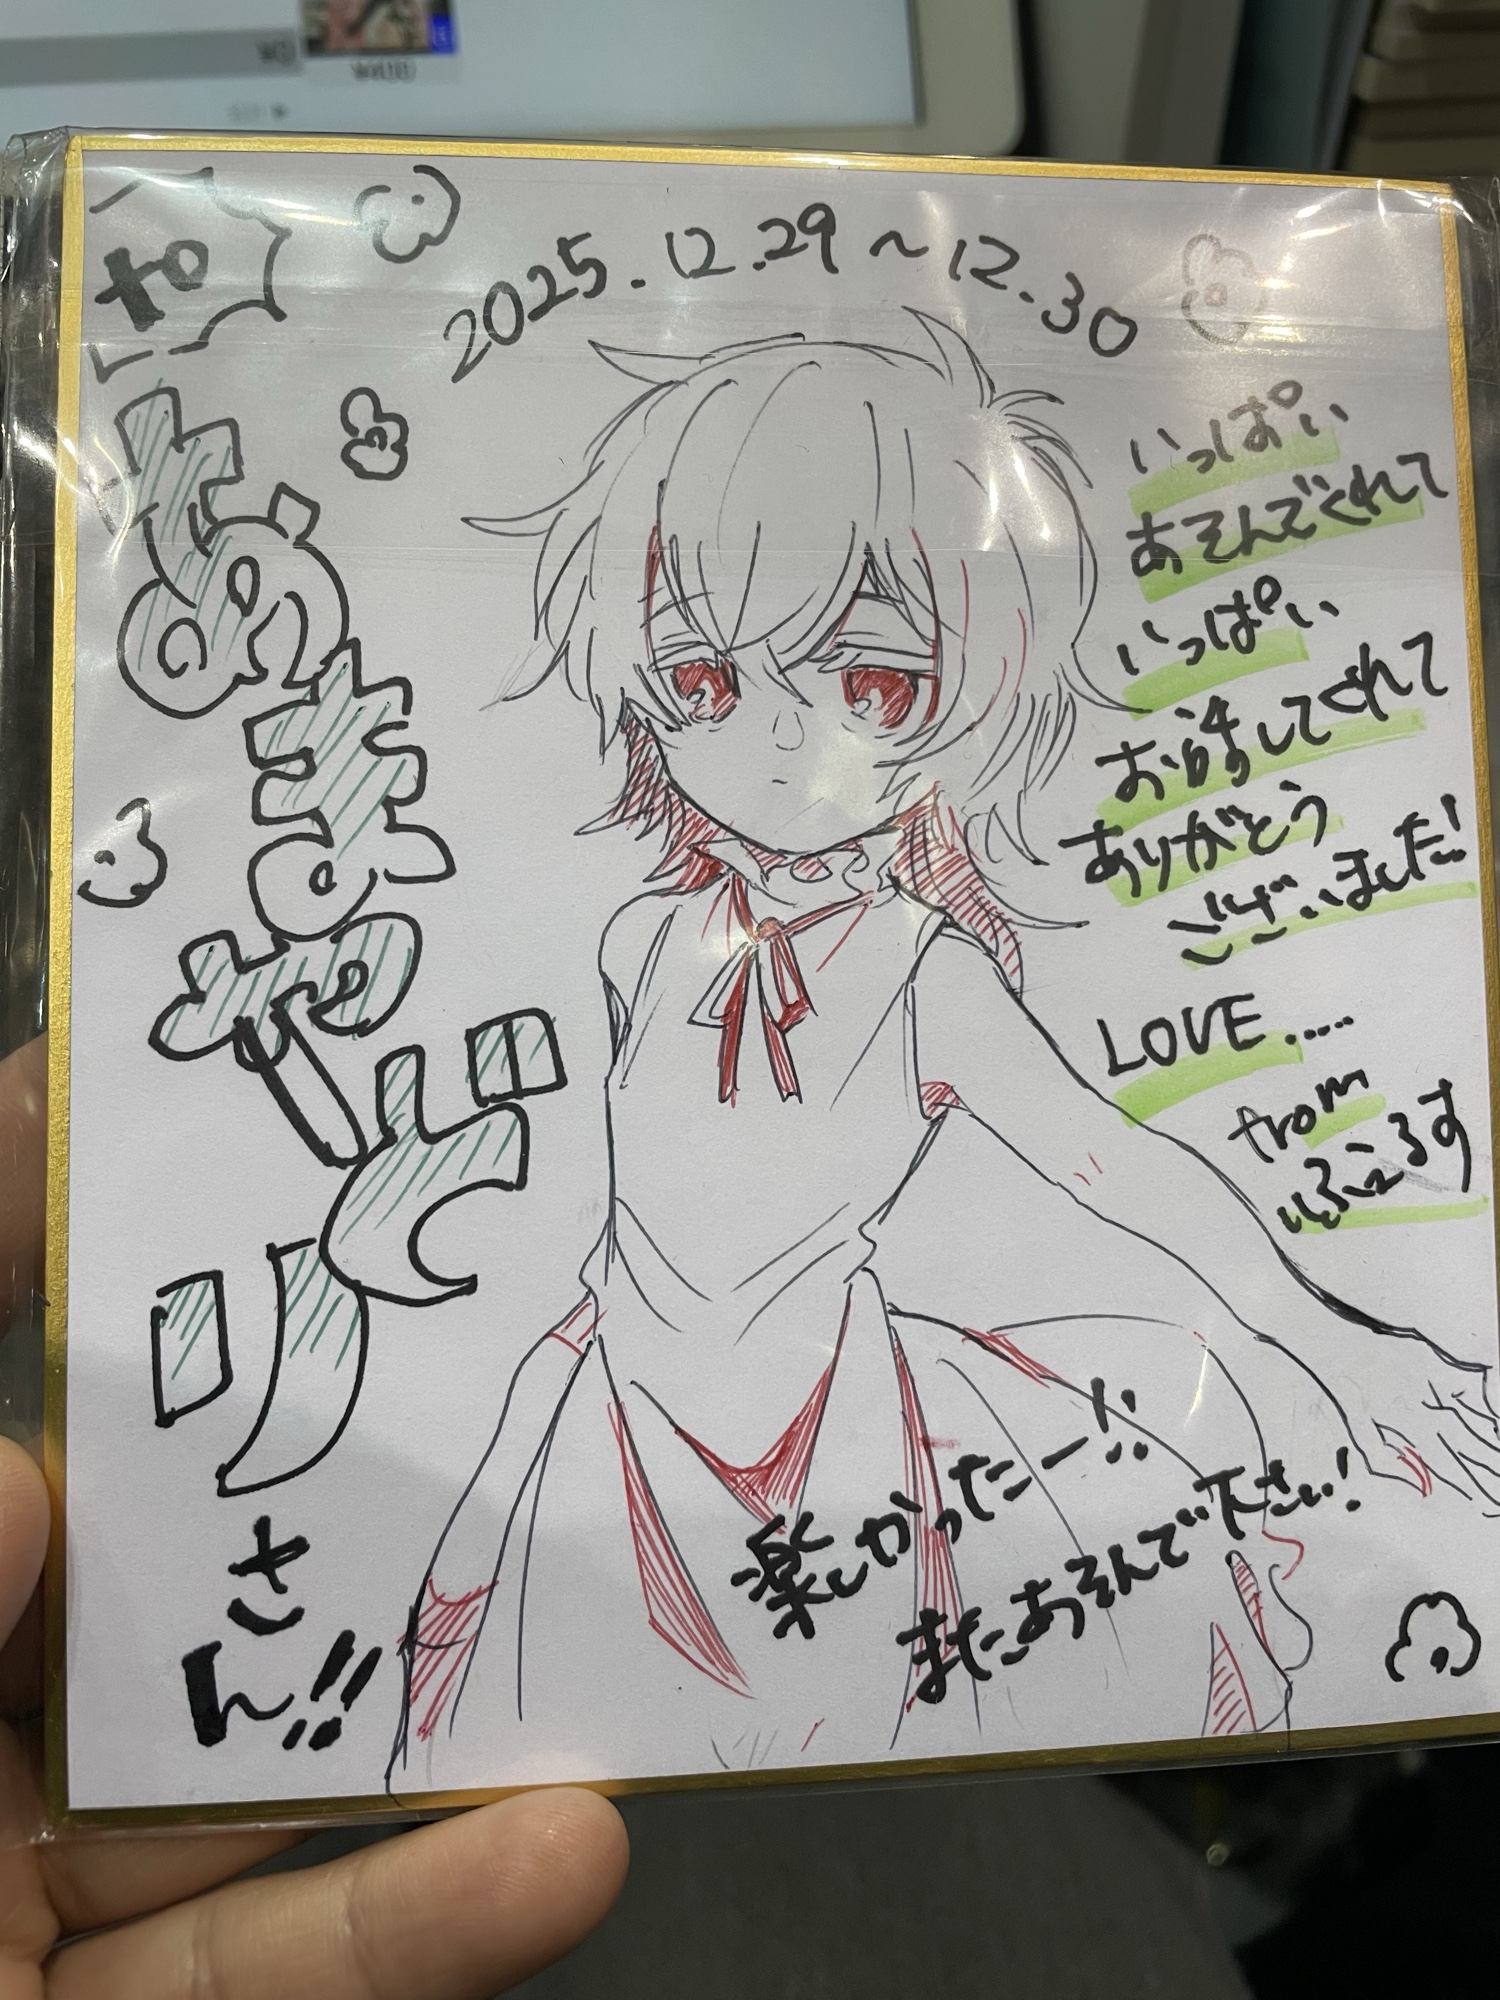 to
あまやどり
さん!!
2025.12.29～12.30
いっぱい
あそんでくれて
いっぱい
お話してくれて
ありがとう
ございました!
LOVE......
from
楽しかったー!!
またあそんで下さい!